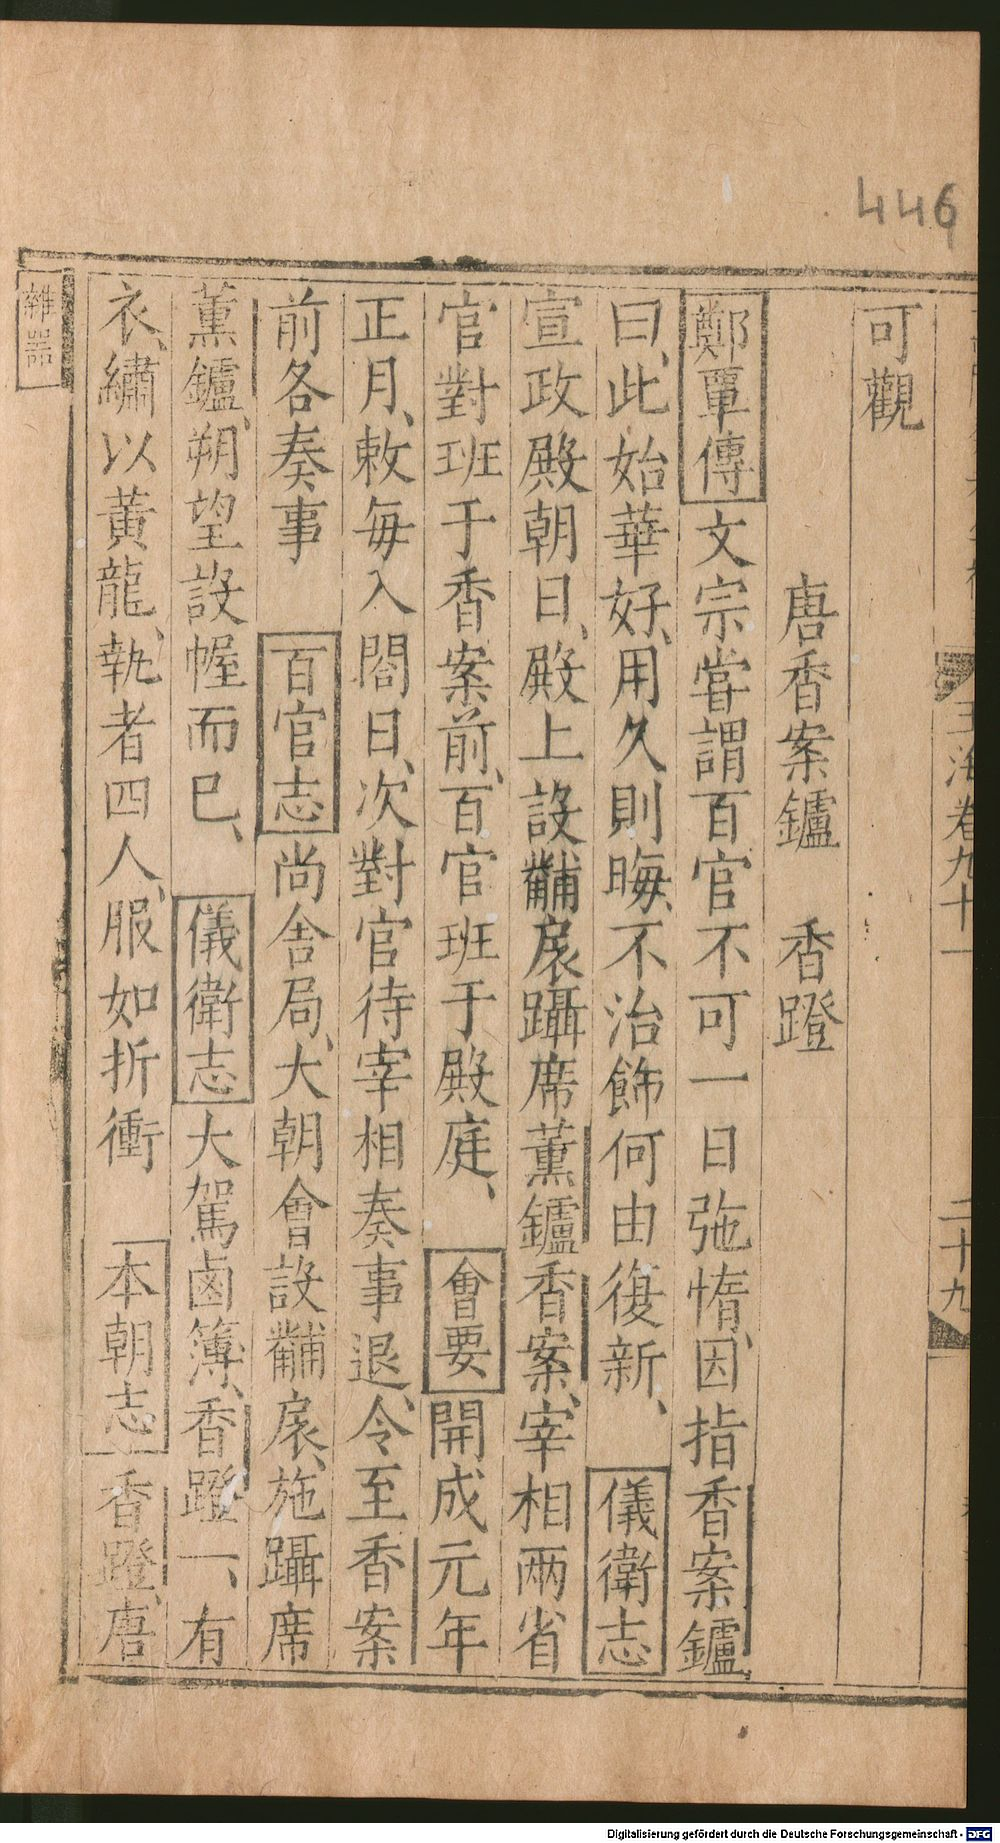 446
玉海卷九十一
二十九
可觀
唐香案鑪 香蹬
鄭覃傳文宗甞謂百官不可一日弛惰因指香案鑪
曰、此始華好、用久則晦、不治飾何由復新、儀衛志
宣政殿朝日、殿上設黼扆躡席薰鑪香案、宰相兩省
官對班于香案前、百官班于殿庭、會要開成元年
正月、敕每入閤日、次對官待宰相奏事退、令至香案
前各奏事 百官志尚舍局、大朝會設黼扆、施躡席
薰鑪、朔望設幄而已、儀衛志大駕鹵簿、香蹬一、有
衣、繡以黃龍、執者四人、服如折衝 本朝志香蹬、唐
雜器
Digitalisierung gefördert durch die Deutsche Forschungsgemeinschaft - DFG